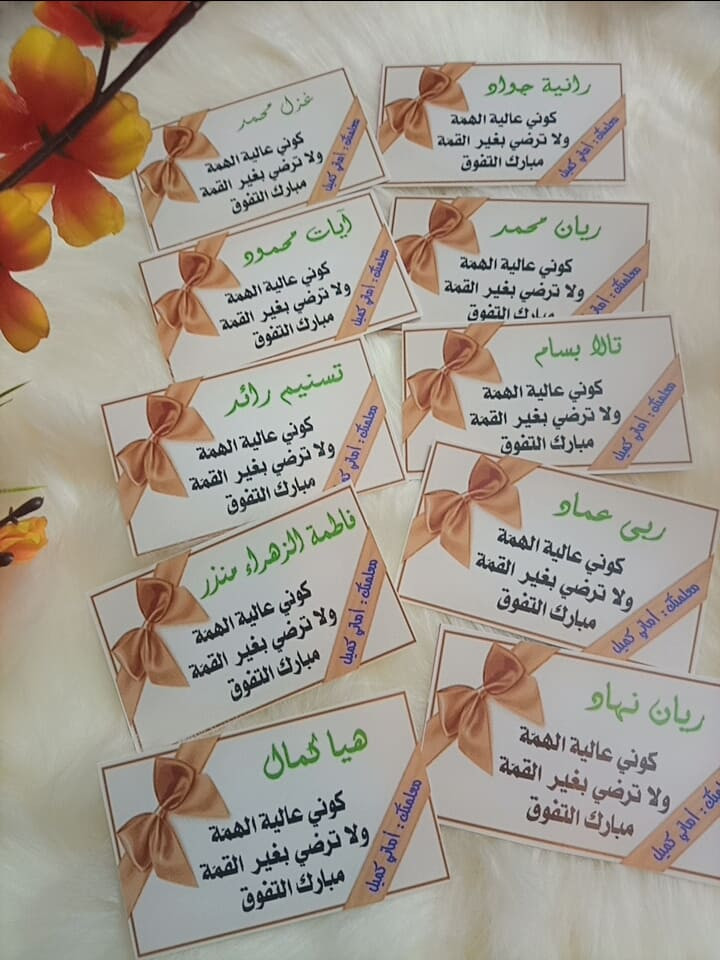 غزل محمد
كوني عالية الهمة
ولا ترضي بغير القمة
مبارك التفوق
معلمتك : أماني كميل
رانية جواد
كوني عالية الهمة
ولا ترضي بغير القمة
مبارك التفوق
معلمتك : أماني كميل
آيات محمود
كوني عالية الهمة
ولا ترضي بغير القمة
مبارك التفوق
معلمتك : أماني كميل
ريان محمد
كوني عالية الهمة
ولا ترضي بغير القمة
مبارك التفوق
معلمتك : أماني كميل
تسنيم رائد
كوني عالية الهمة
ولا ترضي بغير القمة
مبارك التفوق
معلمتك : أماني
تالا بسام
كوني عالية الهمة
ولا ترضي بغير القمة
مبارك التفوق
معلمتك : أماني كميل
فاطمة الزهراء منذر
كوني عالية الهمة
ولا ترضي بغير القمة
مبارك التفوق
معلمتك : أماني كميل
ربى عماد
كوني عالية الهمة
ولا ترضي بغير القمة
مبارك التفوق
معلمتك : أماني كميل
هيا كمال
كوني عالية الهمة
ولا ترضي بغير القمة
مبارك التفوق
معلمتك : أماني كميل
ريان نهاد
كوني عالية الهمة
ولا ترضي بغير القمة
مبارك التفوق
معلمتك : أماني كميل